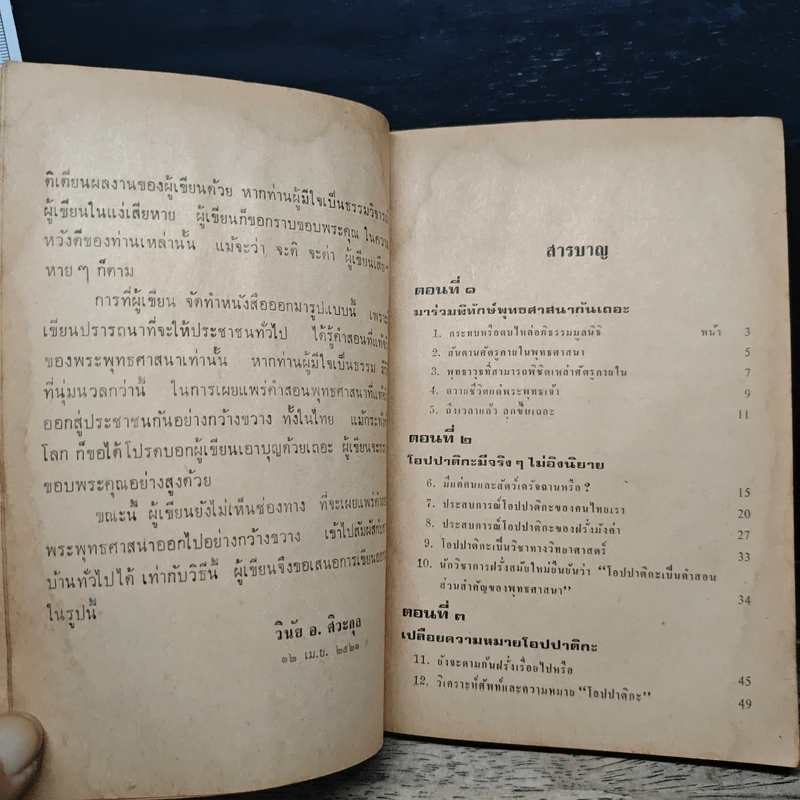 ติเตียนผลงานของผู้เขียนด้วย หากท่านผู้มีใจเป็นธรรมวิจารณ์
ผู้เขียนในแง่เสียหาย ผู้เขียนก็ขอกราบขอบพระคุณ ในความ
หวังดีของท่านเหล่านั้น แม้จะว่า จะติ จะด่า ผู้เขียนเสีย
หาย ๆ ก็ตาม
การที่ผู้เขียน จัดทำหนังสือออกมารูปแบบนี้ เพราะ
เขียนปรารถนาที่จะให้ประชาชนทั่วไป ได้รู้คำสอนที่แท้จริง
ของพระพุทธศาสนาเท่านั้น หากท่านผู้มีใจเป็นธรรม มี
ที่นุ่มนวลกว่านี้ ในการเผยแพร่คำสอนพุทธศาสนาที่แท้
ออกสู่ประชาชนกันอย่างกว้างขวาง ทั้งในไทย แม้กระทั่ง
โลก ก็ขอได้โปรดบอกผู้เขียนเอาบุญด้วยเถอะ ผู้เขียนจะ
ขอบพระคุณอย่างสูงด้วย
ขณะนี้ ผู้เขียนยังไม่เห็นช่องทาง ที่จะเผยแพร่คำ
พระพุทธศาสนาออกไปอย่างกว้างขวาง เข้าไปสัมผัสกับ
บ้านทั่วไปได้ เท่ากับวิธีนี้ ผู้เขียนจึงขอเสนอการเขียนออก
ในรูปนี้
วินัย อ. ศิวะกุล
๑๒ เม.ย. ๒๕๒๑
สารบาญ
ตอนที่ ๑
มาร่วมพิทักษ์พุทธศาสนากันเถอะ
1. กระทบหรือตนไหล่อภิธรรมมูลนิธิ หน้า 3
2. สันดานศัตรูภายในพุทธศาสนา 5
3. พุทธาวุธที่สามารถพิชิตเหล่าศัตรูภายใน 7
4. ถวายชีวิตแด่พระพุทธเจ้า 9
5. ถึงเวลาแล้ว ลุกขึ้นเถอะ 11
ตอนที่ ๒
โอปปาติกะมีจริง ๆ ไม่อิงนิยาย
6. มีแค่คนและสัตว์เดรัจฉานหรือ ? 15
7. ประสบการณ์โอปปาติกะของคนไทยเรา 20
8. ประสบการณ์โอปปาติกะของฝรั่งมังค่า 27
9. โอปปาติกะเป็นวิชาทางวิทยาศาสตร์ 33
10. นักวิชาการฝรั่งสมัยใหม่ยืนยันว่า “โอปปาติกะเป็นคำสอน
ส่วนสำคัญของพุทธศาสนา” 34
ตอนที่ ๓
เปลือยความหมายโอปปาติกะ
11. ยังจะตามก้นฝรั่งเรื่อยไปหรือ 45
12. วิเคราะห์ศัพท์และความหมาย “โอปปาติกะ” 49